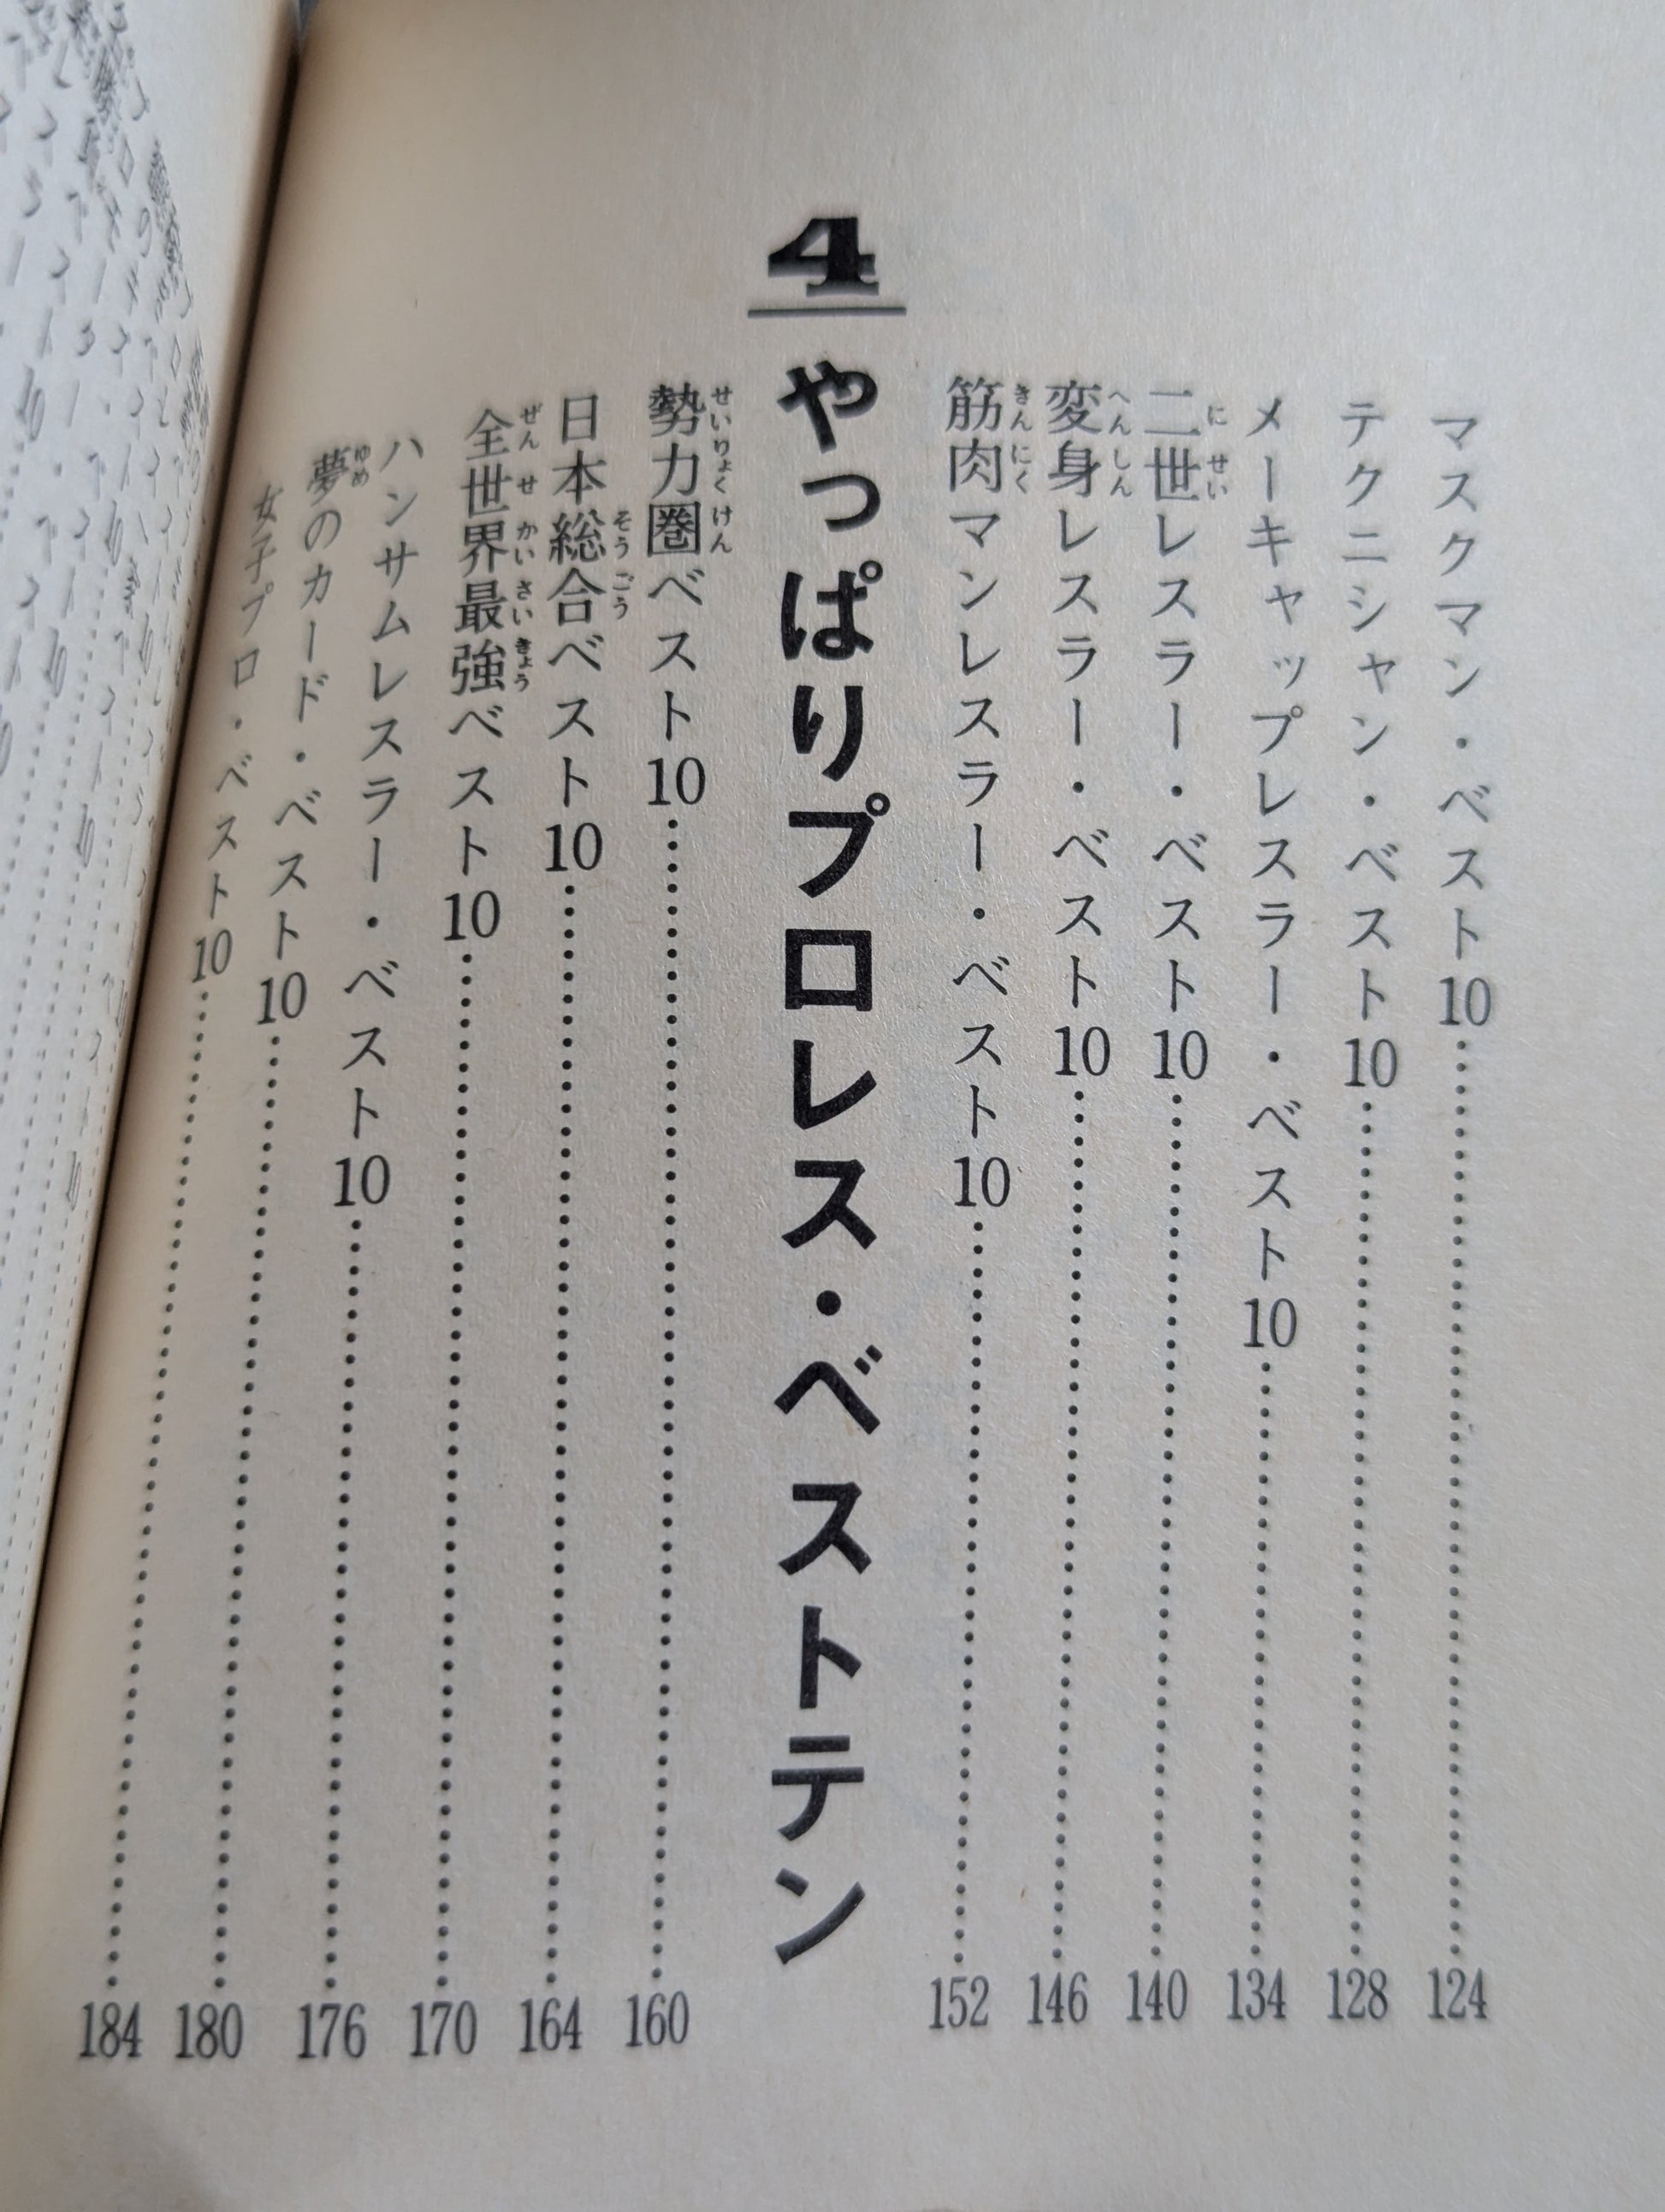 マスクマン・ベスト10……124
テクニシャン・ベスト10……128
メーキャップレスラー・ベスト10……134
二世レスラー・ベスト10……140
変身レスラー・ベスト10……146
筋肉マンレスラー・ベスト10……152
4 やっぱりプロレス・ベストテン
勢力圏ベスト10……160
日本総合ベスト10……164
全世界最強ベスト10……170
ハンサムレスラー・ベスト10……176
夢のカード・ベスト10……180
女子プロ・ベスト10……184